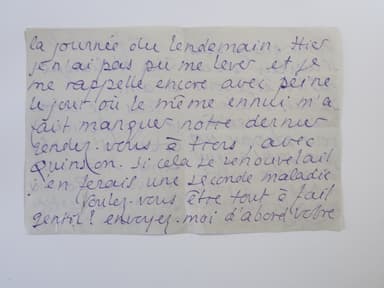 la journée du lendemain. Hier
je n'ai pas pu me lever et je
me rappelle encore avec peine
le jour où le même ennui m'a
fait manquer notre dernier
rendez-vous à trois, avec
Quinson. Si cela se renouvelait
j'en ferais une seconde maladie
Voulez-vous être tout à fait
gentil ? envoyez-moi d'abord votre